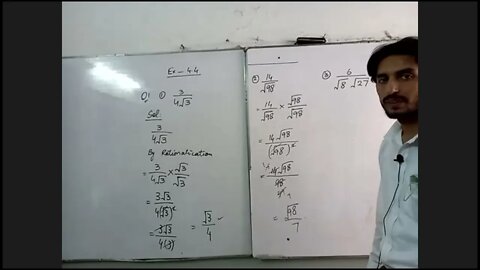 Ex - 4.4
Q1 ① 3/4√3
Sol:
3/4√3
By Rationalization
= 3/4√3 × √3/√3
= 3√3/4(√3)²
= 3√3/4(3) = √3/4
② 14/√98
= 14/√98 × √98/√98
= 14√98/(√98)²
= 14√98/98
= √98/7
③ 6/√8 √27